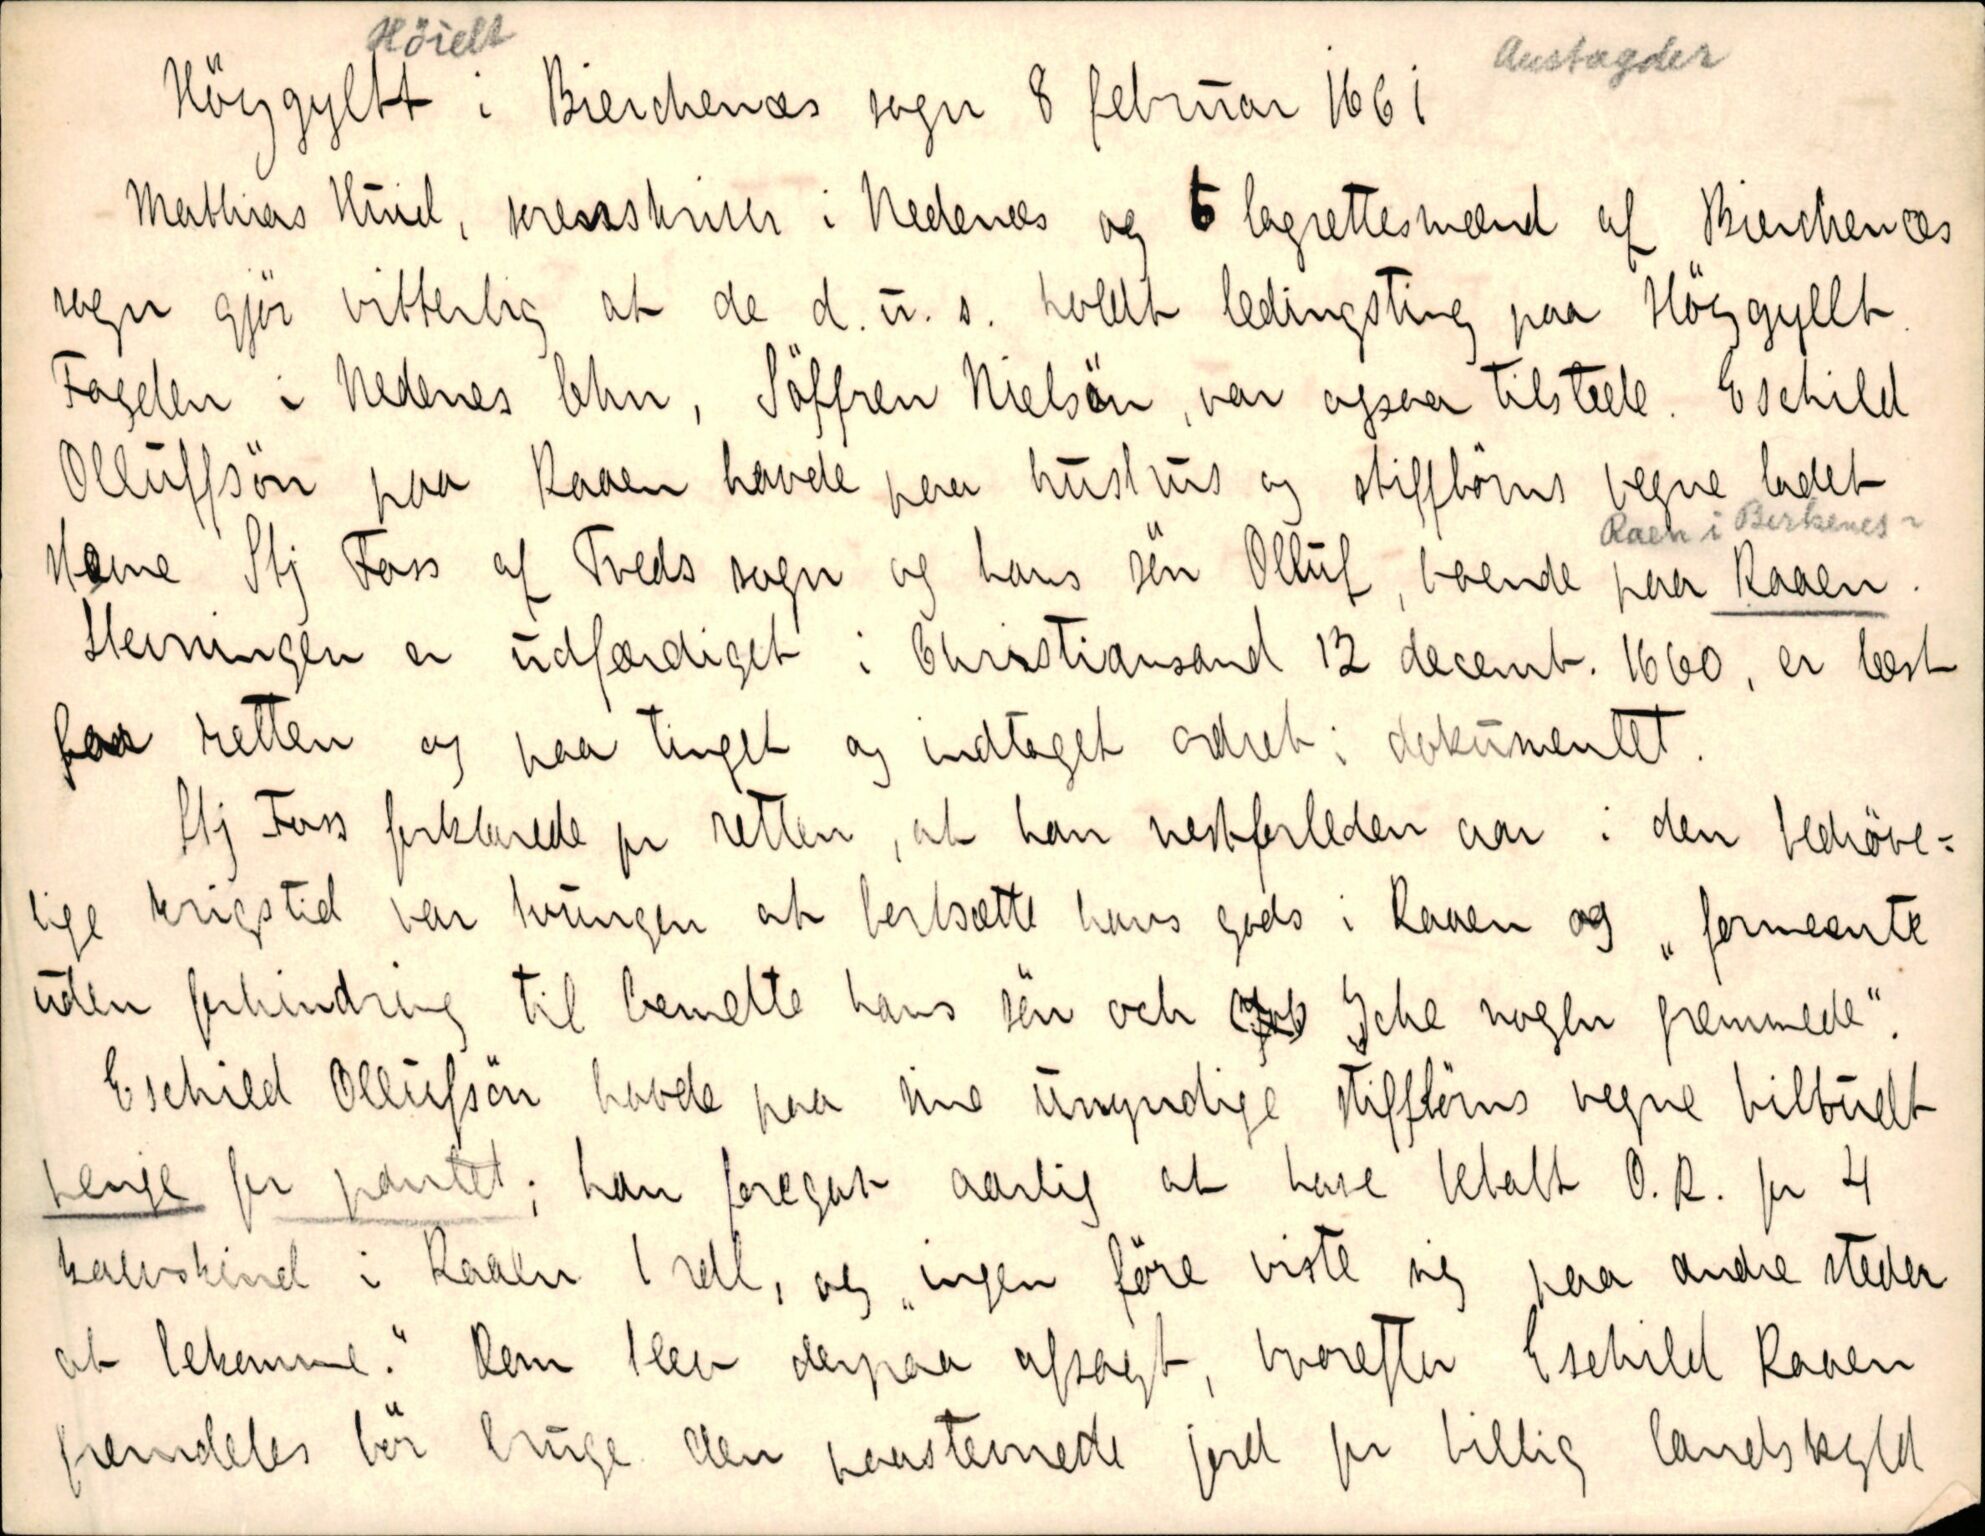 Höielt
Austagder
Höÿgyltt i Bierchenæs sogn 8 februar 1661
Mathias Huid, sorenskriuer i Nedenæs og 6 lagrettesmænd af Bierchenæs
sogn gjör vitterlig at de d. u. s. holdt ledingsting paa Höÿgyllt.
Fogden i Nedenes lehn, Söffren Nielsön, var ogsaa tilstede. Eschild
Olluffsön paa Raaen havde paa hustrus og stiffbörns vegne ladet
Raen i Birkenes
stevne Stj Foss af Tveds sogn og hans sön Olluf, boende paa Raaen.
Stevningen er udfærdiget i Christiansand 12 decemb. 1660, er læst
for retten og paa tinget og indtaget ordret i dokumentet.
Stj Foss forklarede for retten, at han nestforleden aar i den bedröve-
lige krigstid var tvungen at bortsætte hans gods i Raaen og „formeente
uden forhindring til bemelte hans sön och Iche nogen fremmede“.
Eschild Ollufsön havde paa sine umyndige stiffbörns vegne tilbudt
penge for pantet; han foregat aarlig at have betalt O. R. for 4
kalvskind i Raaen 1 rdl, og „ingen före viste sig paa andre steder
at bekomme.“ Dom blev derpaa afsagt, hvorefter Eschild Raaen
fremdeles bör bruge den paastevnede jord for billig landskyld